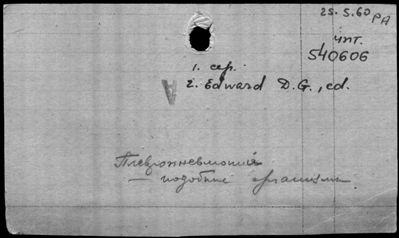 25.5.60 РА
чпт.
540606
1. сер.
2. Edward D.G., ed.
A
Плевропневмония
— подобные организмы